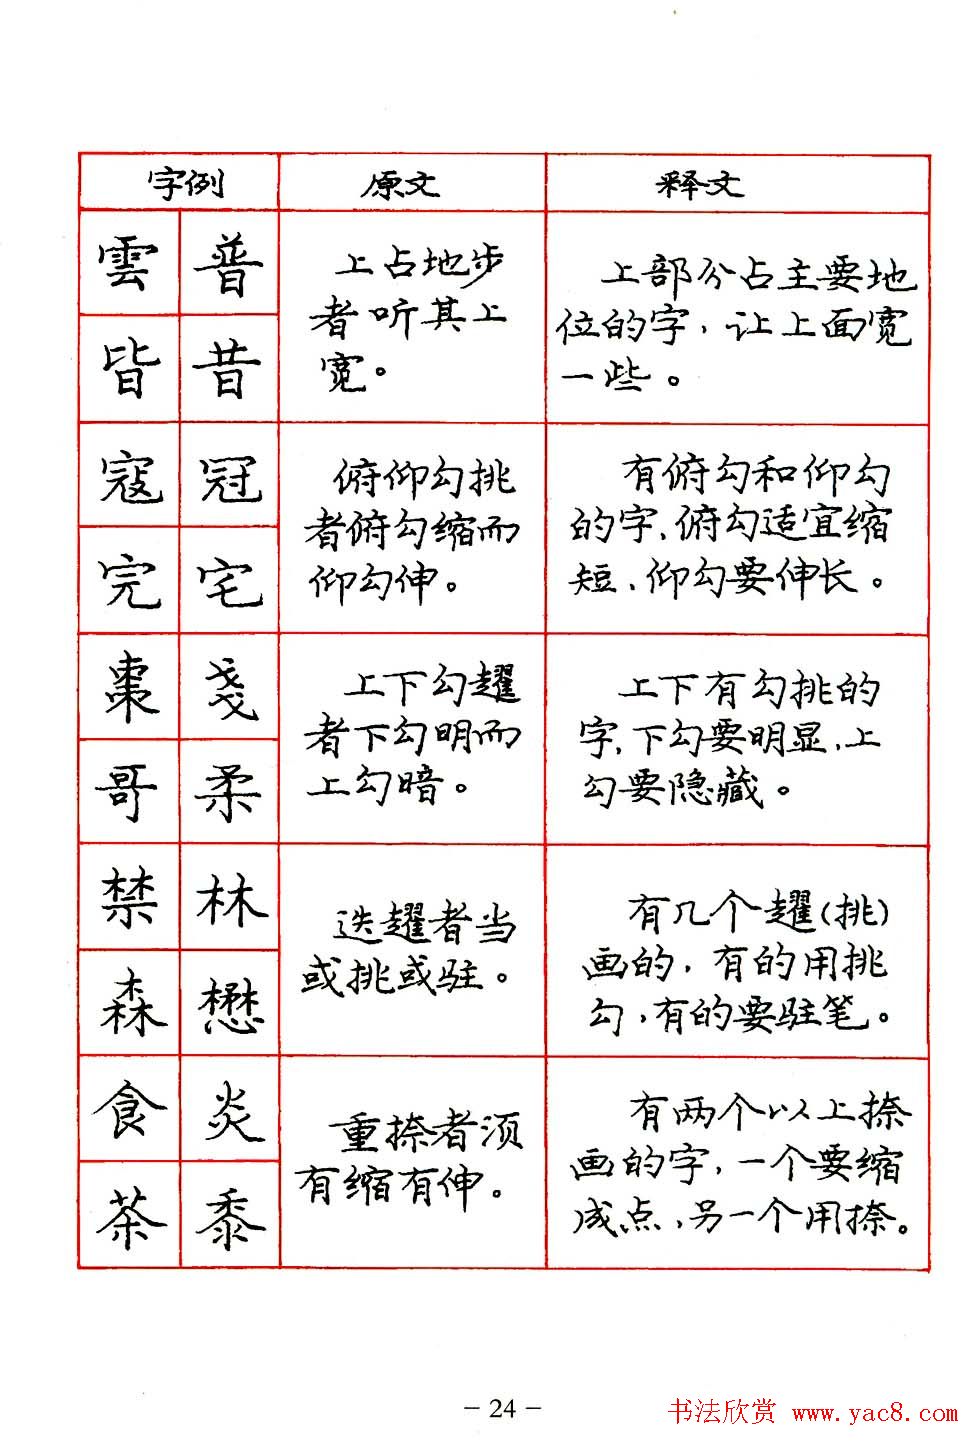 字例 原文 释文
雲 普
皆 昔
上占地步
者听其上
宽。
上部分占主要地
位的字，让上面宽
一些。
寇 冠
完 宅
俯仰勾挑
者俯勾缩而
仰勾伸。
有俯勾和仰勾
的字，俯勾适宜缩
短，仰勾要伸长。
枣 戋
哥 柔
上下勾趯
者下勾明而
上勾暗。
上下有勾挑的
字，下勾要明显，上
勾要隐藏。
禁 林
森 懋
迭趯者当
或挑或驻。
有几个趯(挑)
画的，有的用挑
勾，有的要驻笔。
食 炎
茶 黍
重捺者须
有缩有伸。
有两个以上捺
画的字，一个要缩
成点，另一个用捺。
- 24 -
书法欣赏 www.yac8.com